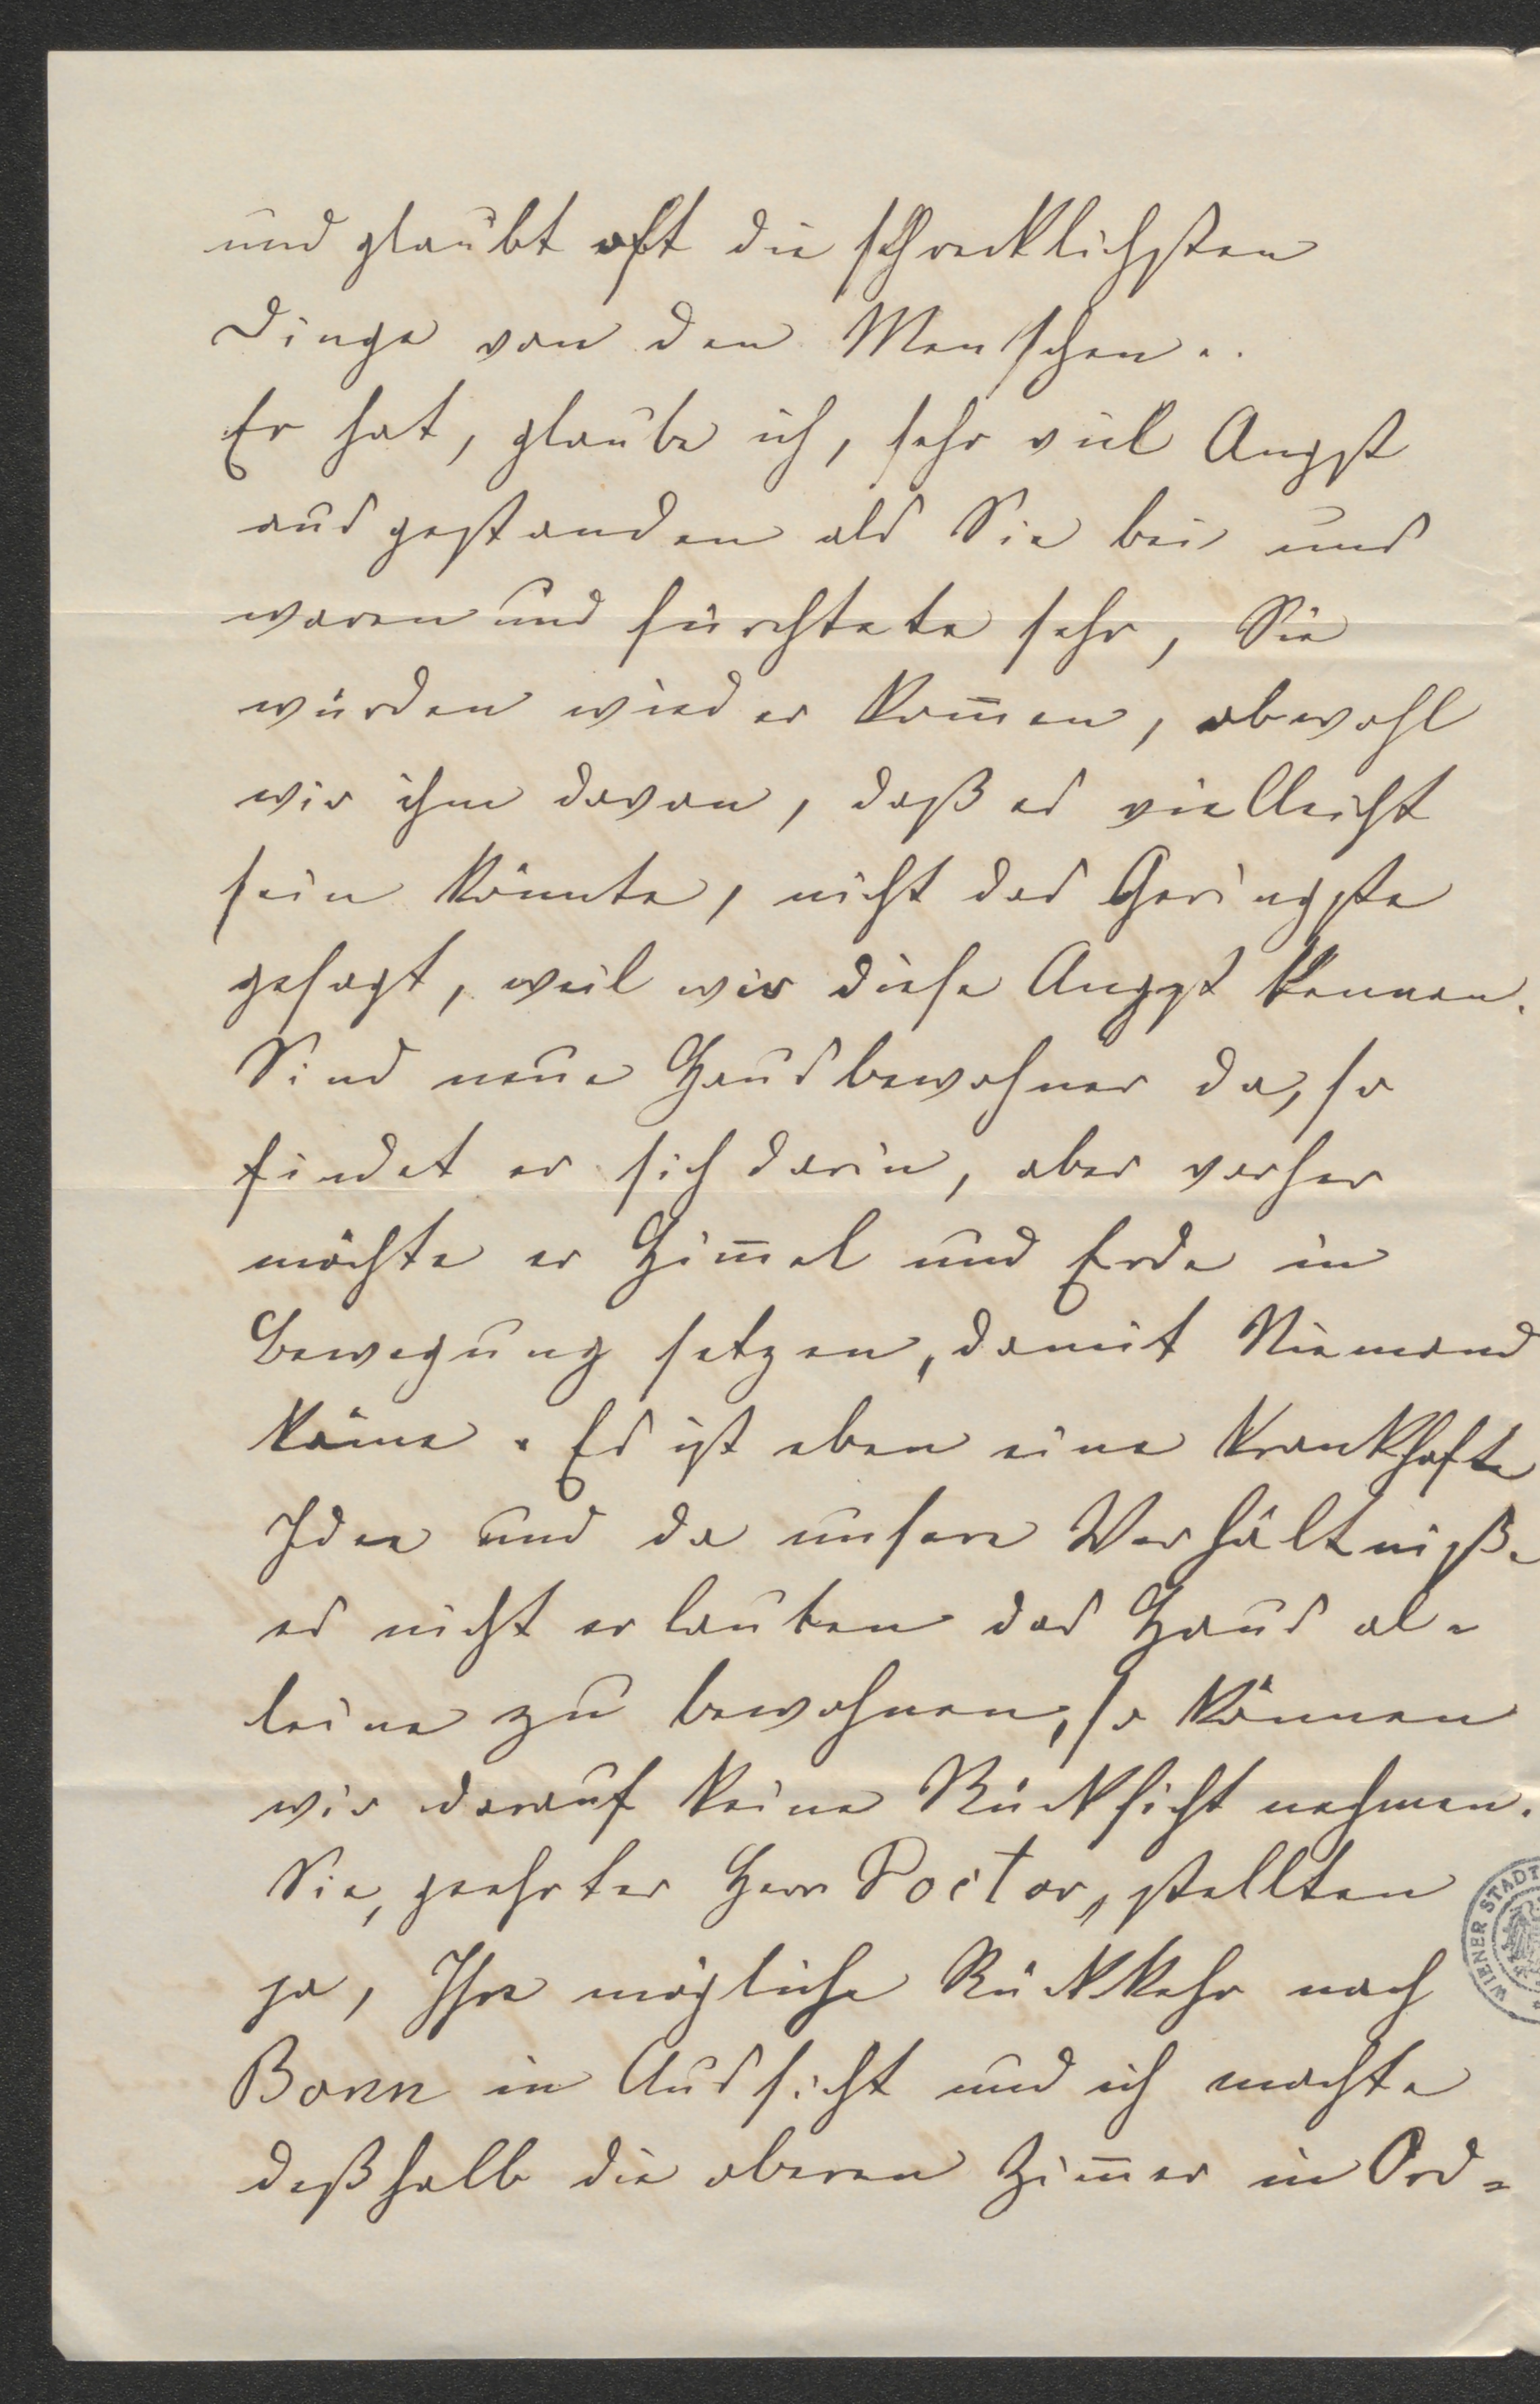 und glaubt oft die schrecklichsten
Dinge von den Menschen..
Er hat, glaube ich, sehr viel Angst
ausgestanden als Sie bei uns
waren und fürchtete sehr, Sie
würden wieder kom̅en, obwohl
wir ihm davon, daß es vielleicht
sein könnte, nicht das Geringste
gesagt, weil wir diese Angst kennen.
Sind neue Hausbewohner da, so
findet er sich darin, aber vorher
möchte er Him̅el und Erde in
Bewegung setzen, damit Niemand
käme. Es ist eben eine krankhafte
Idee und da unsere Verhältniße
es nicht erlauben das Haus al=
leine zu bewohnen, so können
wir darauf keine Rücksicht nehmen.
Sie, geehrter Herr Doctor, stellten
ja, Ihre mögliche Rückkehr nach
Bonn in Aussicht und ich machte
deßhalb die oberen Zim̅er in Ord=
WIENER STADT